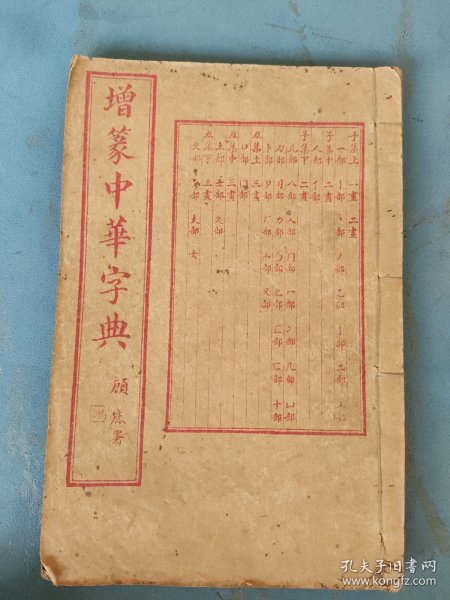 增篆中華字典
顧 署
子集上 一畫 二畫
一部 丨部 丶部 丿部 乙部 亅部 二部 亠部
子集中 二畫
人部 亻部
子集下 二畫
儿部 八部 入部 冂部 冖部 冫部 几部 凵部
刀部 刂部 力部 勹部 匕部 匚部 匸部 十部
卜部 卩部 厂部 厶部 又部
丑集上 三畫
口部 囗部
丑集中 三畫
土部 士部 夊部
丑集下 三畫
夕部 大部 女
孔夫子旧书网
www.kongfz.com